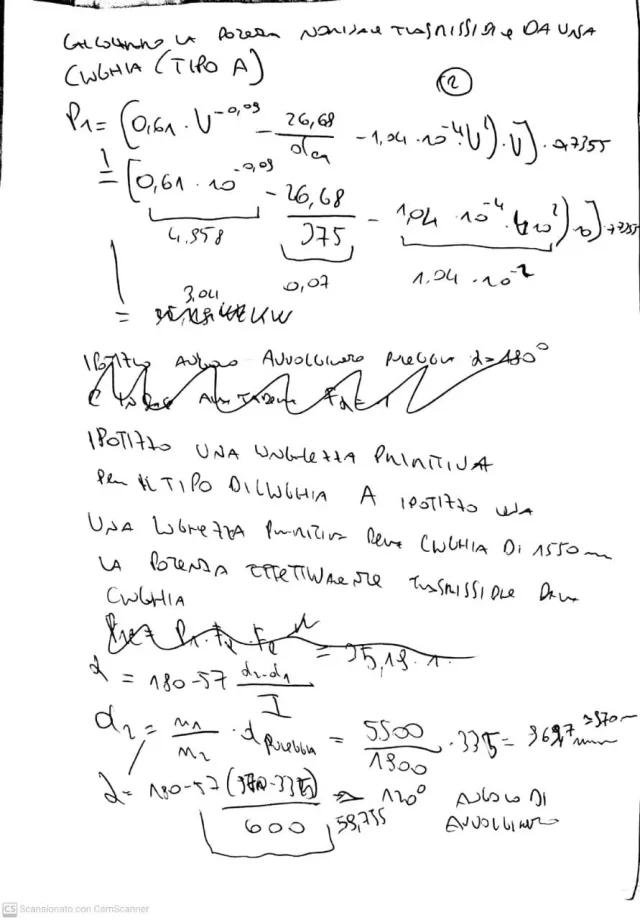 CALCOLIAMO LA POTENZA NOMINALE TRASMISSIBILE DA UNA
CINGHIA (TIPO A)
2
P1 = [(0,61 · V^-0,09 - 26,68/de1 - 1,04 · 10^-4 · V²) · V] · 0,7355
= [(0,61 · 10^-0,09 - 26,68/375 - 1,04 · 10^-4 · (10²)) 10] · 0,7355
4,958
0,07
1,04 · 10^-2
3,04
= KW
IPOTIZZO ANGOLO AVVOLGIMENTO PULEGGIA α = 180°
IPOTIZZO UNA LUNGHEZZA PRIMITIVA
PER IL TIPO DI CINGHIA A IPOTIZZO
UNA LUNGHEZZA PRIMITIVA DELLA CINGHIA DI 1550 mm
LA POTENZA EFFETTIVAMENTE TRASMISSIBILE DALLA
CINGHIA
= 35,19 · 1
α = 180 - 57 d2-d1/I
d2 = n1/n2 · d PULEGGIA = 5500/1800 · 335 = 369,7 mm
370
α = 180 - 57 (370 - 335)/600 ≅ 120° ANGOLO DI
59,755 AVVOLGIMENTO
CS Scansionato con CamScanner